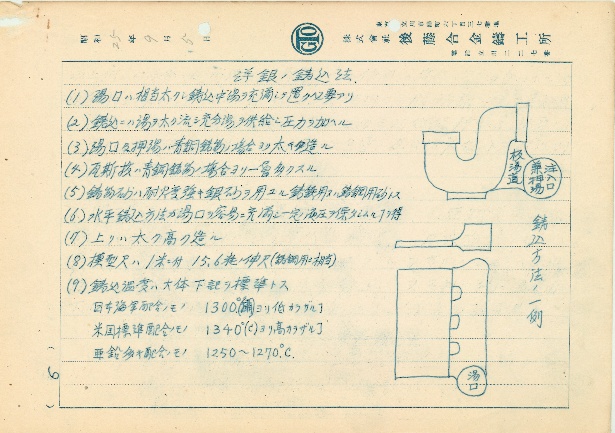 昭和25年9月15日
GTO
株式會社 後藤合金鑄工所
洋銀ノ鋳込法
(1) 湯口ハ相当太クシ鋳込中湯ヲ充満シテ置ク必要アリ
(2) 鋳込ニハ湯ヲ太ク流シ充分湯ヲ供給シ圧力ヲ加ヘル
(3) 湯口及押湯ハ青銅鋳物ノ場合ヨリ太キ造ル
(4) 瓦斯抜ハ青銅鋳物ノ場合ヨリ一層多クスル
(5) 鋳物砂ハ耐火度強キ銀砂ヲ用ユル 鋳鋼用砂トス
(6) 水平鋳込方法ガ湯口ヲ容易ニ充満シ一定ノ
(7) 上リハ太ク高ク造ル
(8) 模型尺ハ1米ニ付15.6粍ノ伸尺(鋳鋼用ニ相当)
(9) 鋳込温度ハ大体下記ヲ標準トス
日本海軍配合ノモノ 1300°(C)ヨリ低カラザル
米国標準配合ノモノ 1340°(C)ヨリ高カラザル
亜鉛多キ配合ノモノ 1250〜1270°C.
板湯道
注入口兼押湯
鋳込方法ノ一例
湯口
(6)